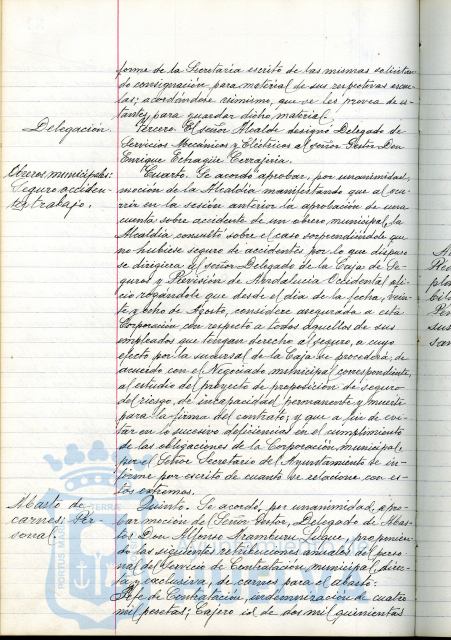 forme de la Secretaría escrito de las mismas solicitan-
do consignación para material de sus respectivas escue-
las; acordándose asimismo, que se les provea de es-
tantes para guardar dicho material.
Delegación.
Tercero. El señor Alcalde designó Delegado de
Servicios Mecánicos y Eléctricos al señor Gestor Don
Enrique Echagüe Cerrajería.
Obreros municipales:
Seguro acciden-
tes trabajo.
Cuarto. Se acordó aprobar, por unanimidad,
moción de la Alcaldía manifestando que al ocu-
rrir en la sesión anterior la aprobación de una
cuenta sobre accidente de un obrero municipal, la
Alcaldía consultó sobre el caso sorprendiéndole que
no hubiese seguro de accidentes por lo que dispuso
se dirigiera al señor Delegado de la Caja de Se-
guros y Previsión de Andalucía Occidental ofi-
cio rogándole que desde el día de la fecha, vein-
te y ocho de Agosto, considere asegurada a esta
Corporación con respecto a todos aquellos de sus
empleados que tengan derecho al seguro, a cuyo
efecto, por la sucursal de la Caja se procederá, de
acuerdo con el Negociado municipal correspondiente,
al estudio del proyecto de proposición de seguro
del riesgo, de incapacidad permanente y muerte
para la firma del contrato; y que a fin de evi-
tar en lo sucesivo deficiencias en el cumplimiento
de las obligaciones de la Corporación municipal,
por el Señor Secretario del Ayuntamiento se in-
forme por escrito de cuanto se relacione con es-
tos extremos.
Abasto de
carnes: Per-
sonal.
Quinto. Se acordó, por unanimidad, apro-
bar moción del Señor Gestor, Delegado de Abas-
tos Don Alfonso Aramburu, proponien-
do las siguientes retribuciones anuales del perso-
nal del Servicio de Contratación municipal, direc-
ta y exclusiva, de carnes para el abasto:
Jefe de Contratación, indemnización de cuatro
mil pesetas; Cajero id de dos mil quinientas